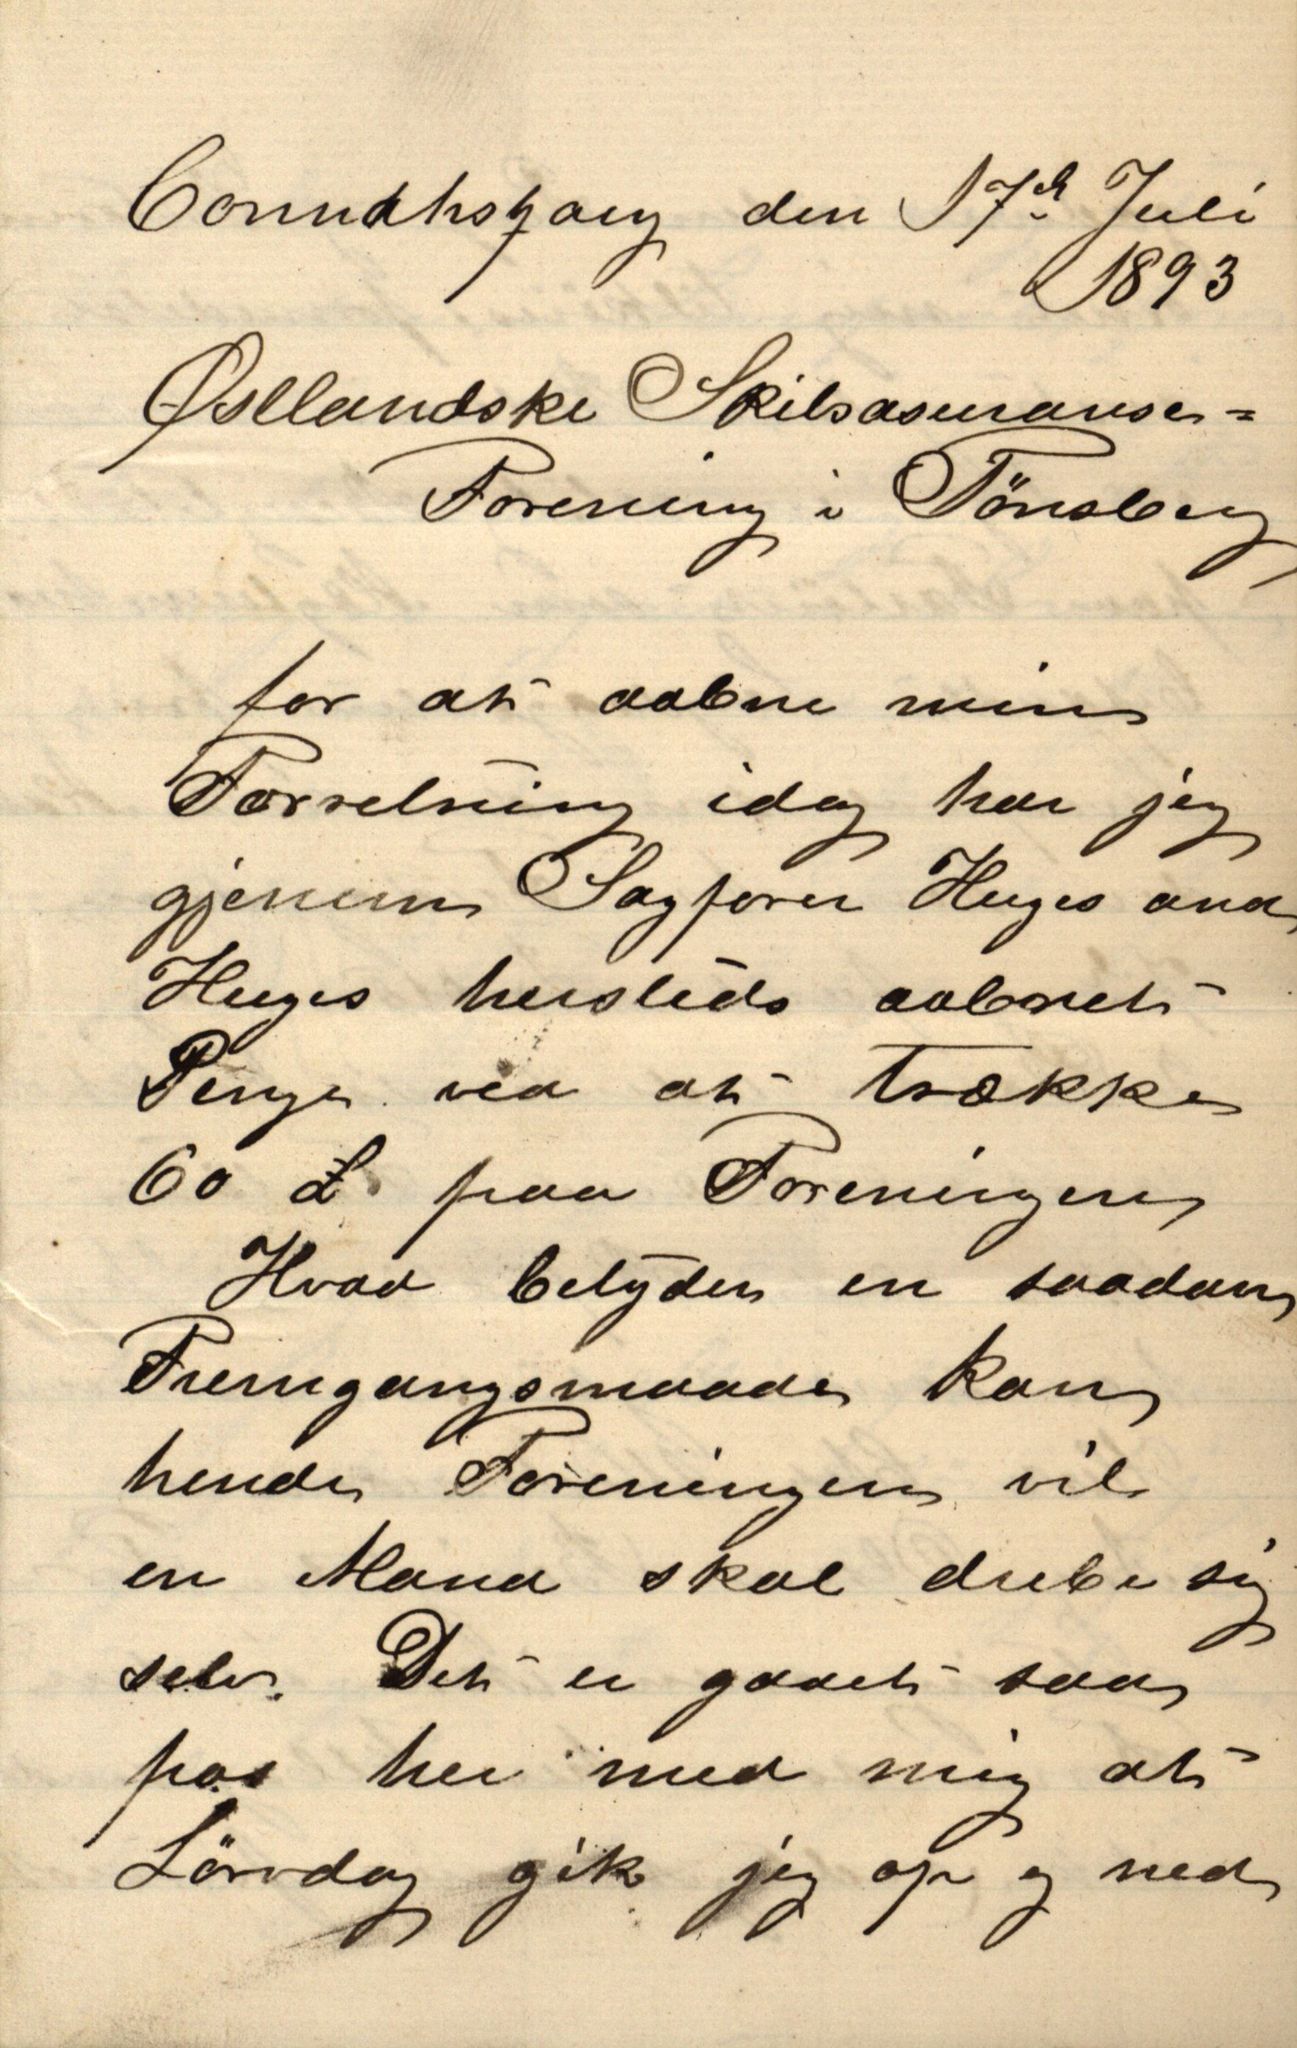 Connahsqay den 17de Juli
1893
Østlandske Skibsasuranse=
Forening i Tönsberg
for at aabne min
Forretning idag har jeg
gjenem Sagförer Huges and
Huges hersteds aabnet
Penge ved at trække
60 £ paa Foreningen
Hvad betyder en saadan
Fremgangsmaade kan
hende Foreningen vil
en Mand skal dræbe sig
selv. Det er gaaet saa
pas her med mig at
Lörvdag gik jeg op og ned